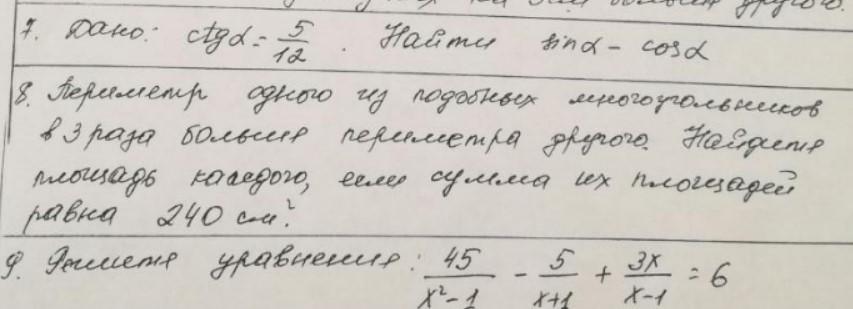 другого.
7. Дано: ctgα = 5/12 . Найти sinα - cosα
8. Периметр одного из подобных многоугольников
в 3 раза больше периметра другого. Найдите
площадь каждого, если сумма их площадей
равна 240 см².
9. Решите уравнение: 45/(x²-1) - 5/(x+1) + 3x/(x-1) = 6